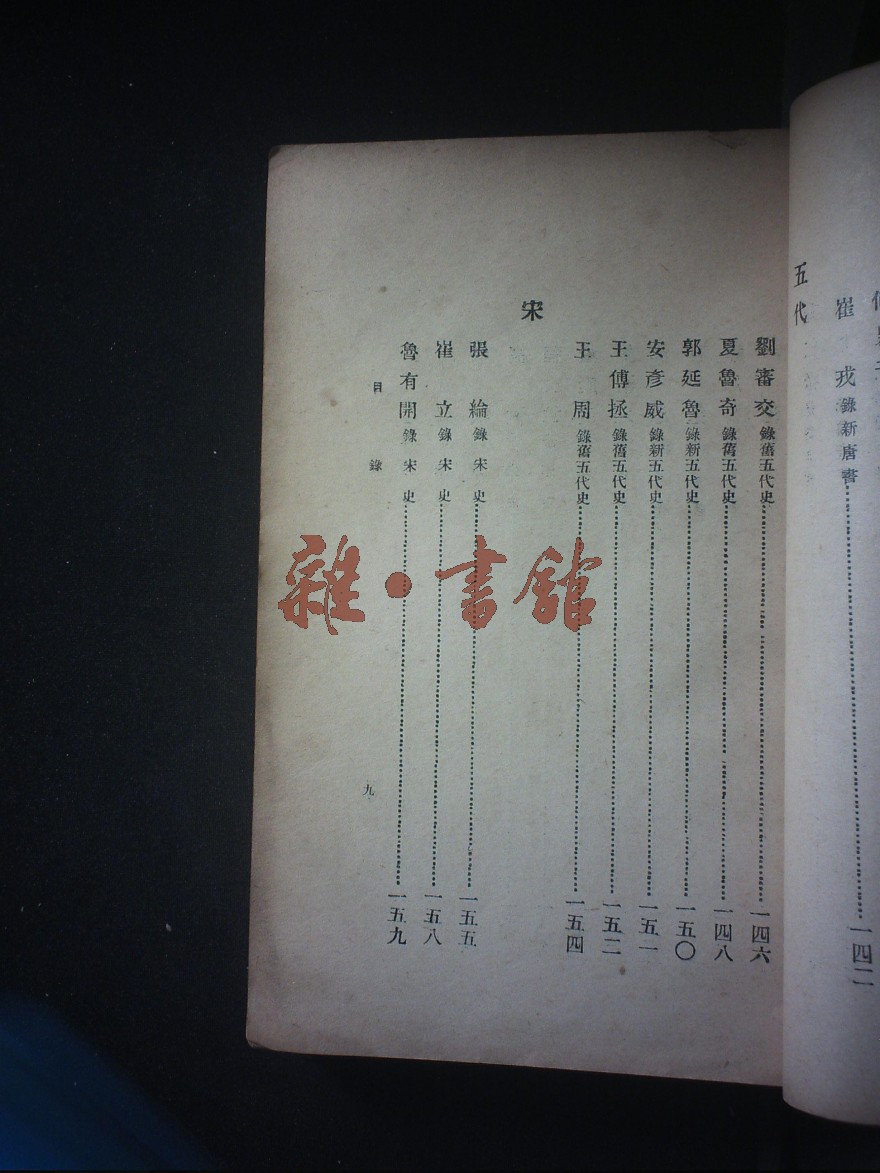 崔戎錄新唐書一四二
五代
劉審交錄舊五代史一四六
夏魯奇錄舊五代史一四八
郭延魯錄新五代史一五〇
安彥威錄新五代史一五一
王傅拯錄舊五代史一五二
王周錄舊五代史一五四
宋
張綸錄宋史一五五
崔立錄宋史一五八
魯有開錄宋史一五九
目錄
九
雜·書舘